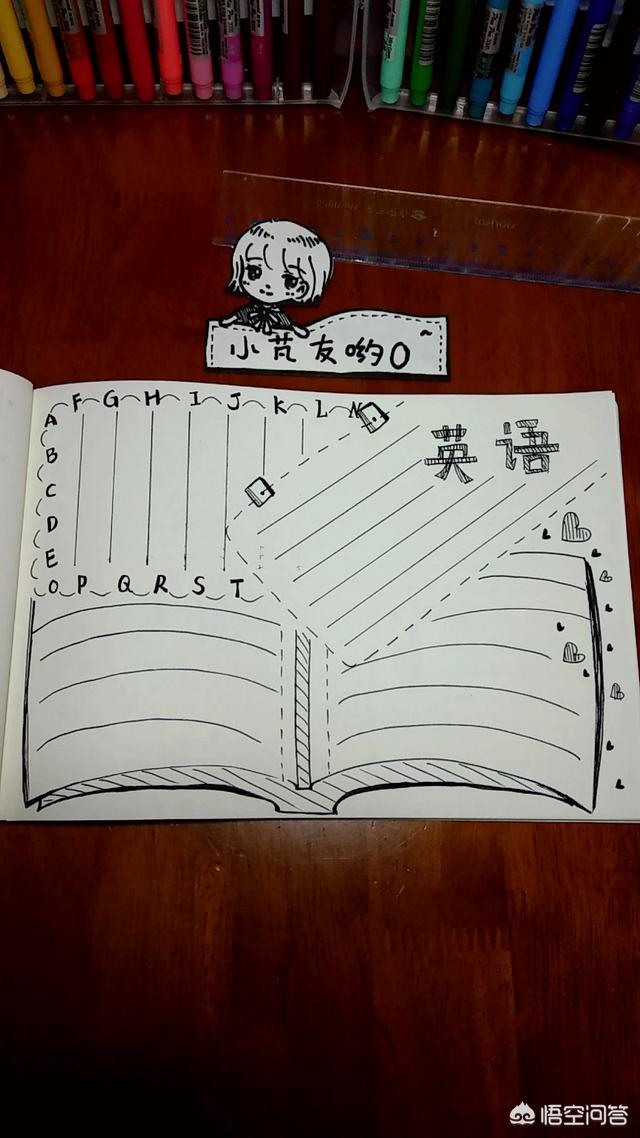 小芃友哟O~
F G H I J K L N
A
B
C
D
E
O P Q R S T
英语
悟空问答